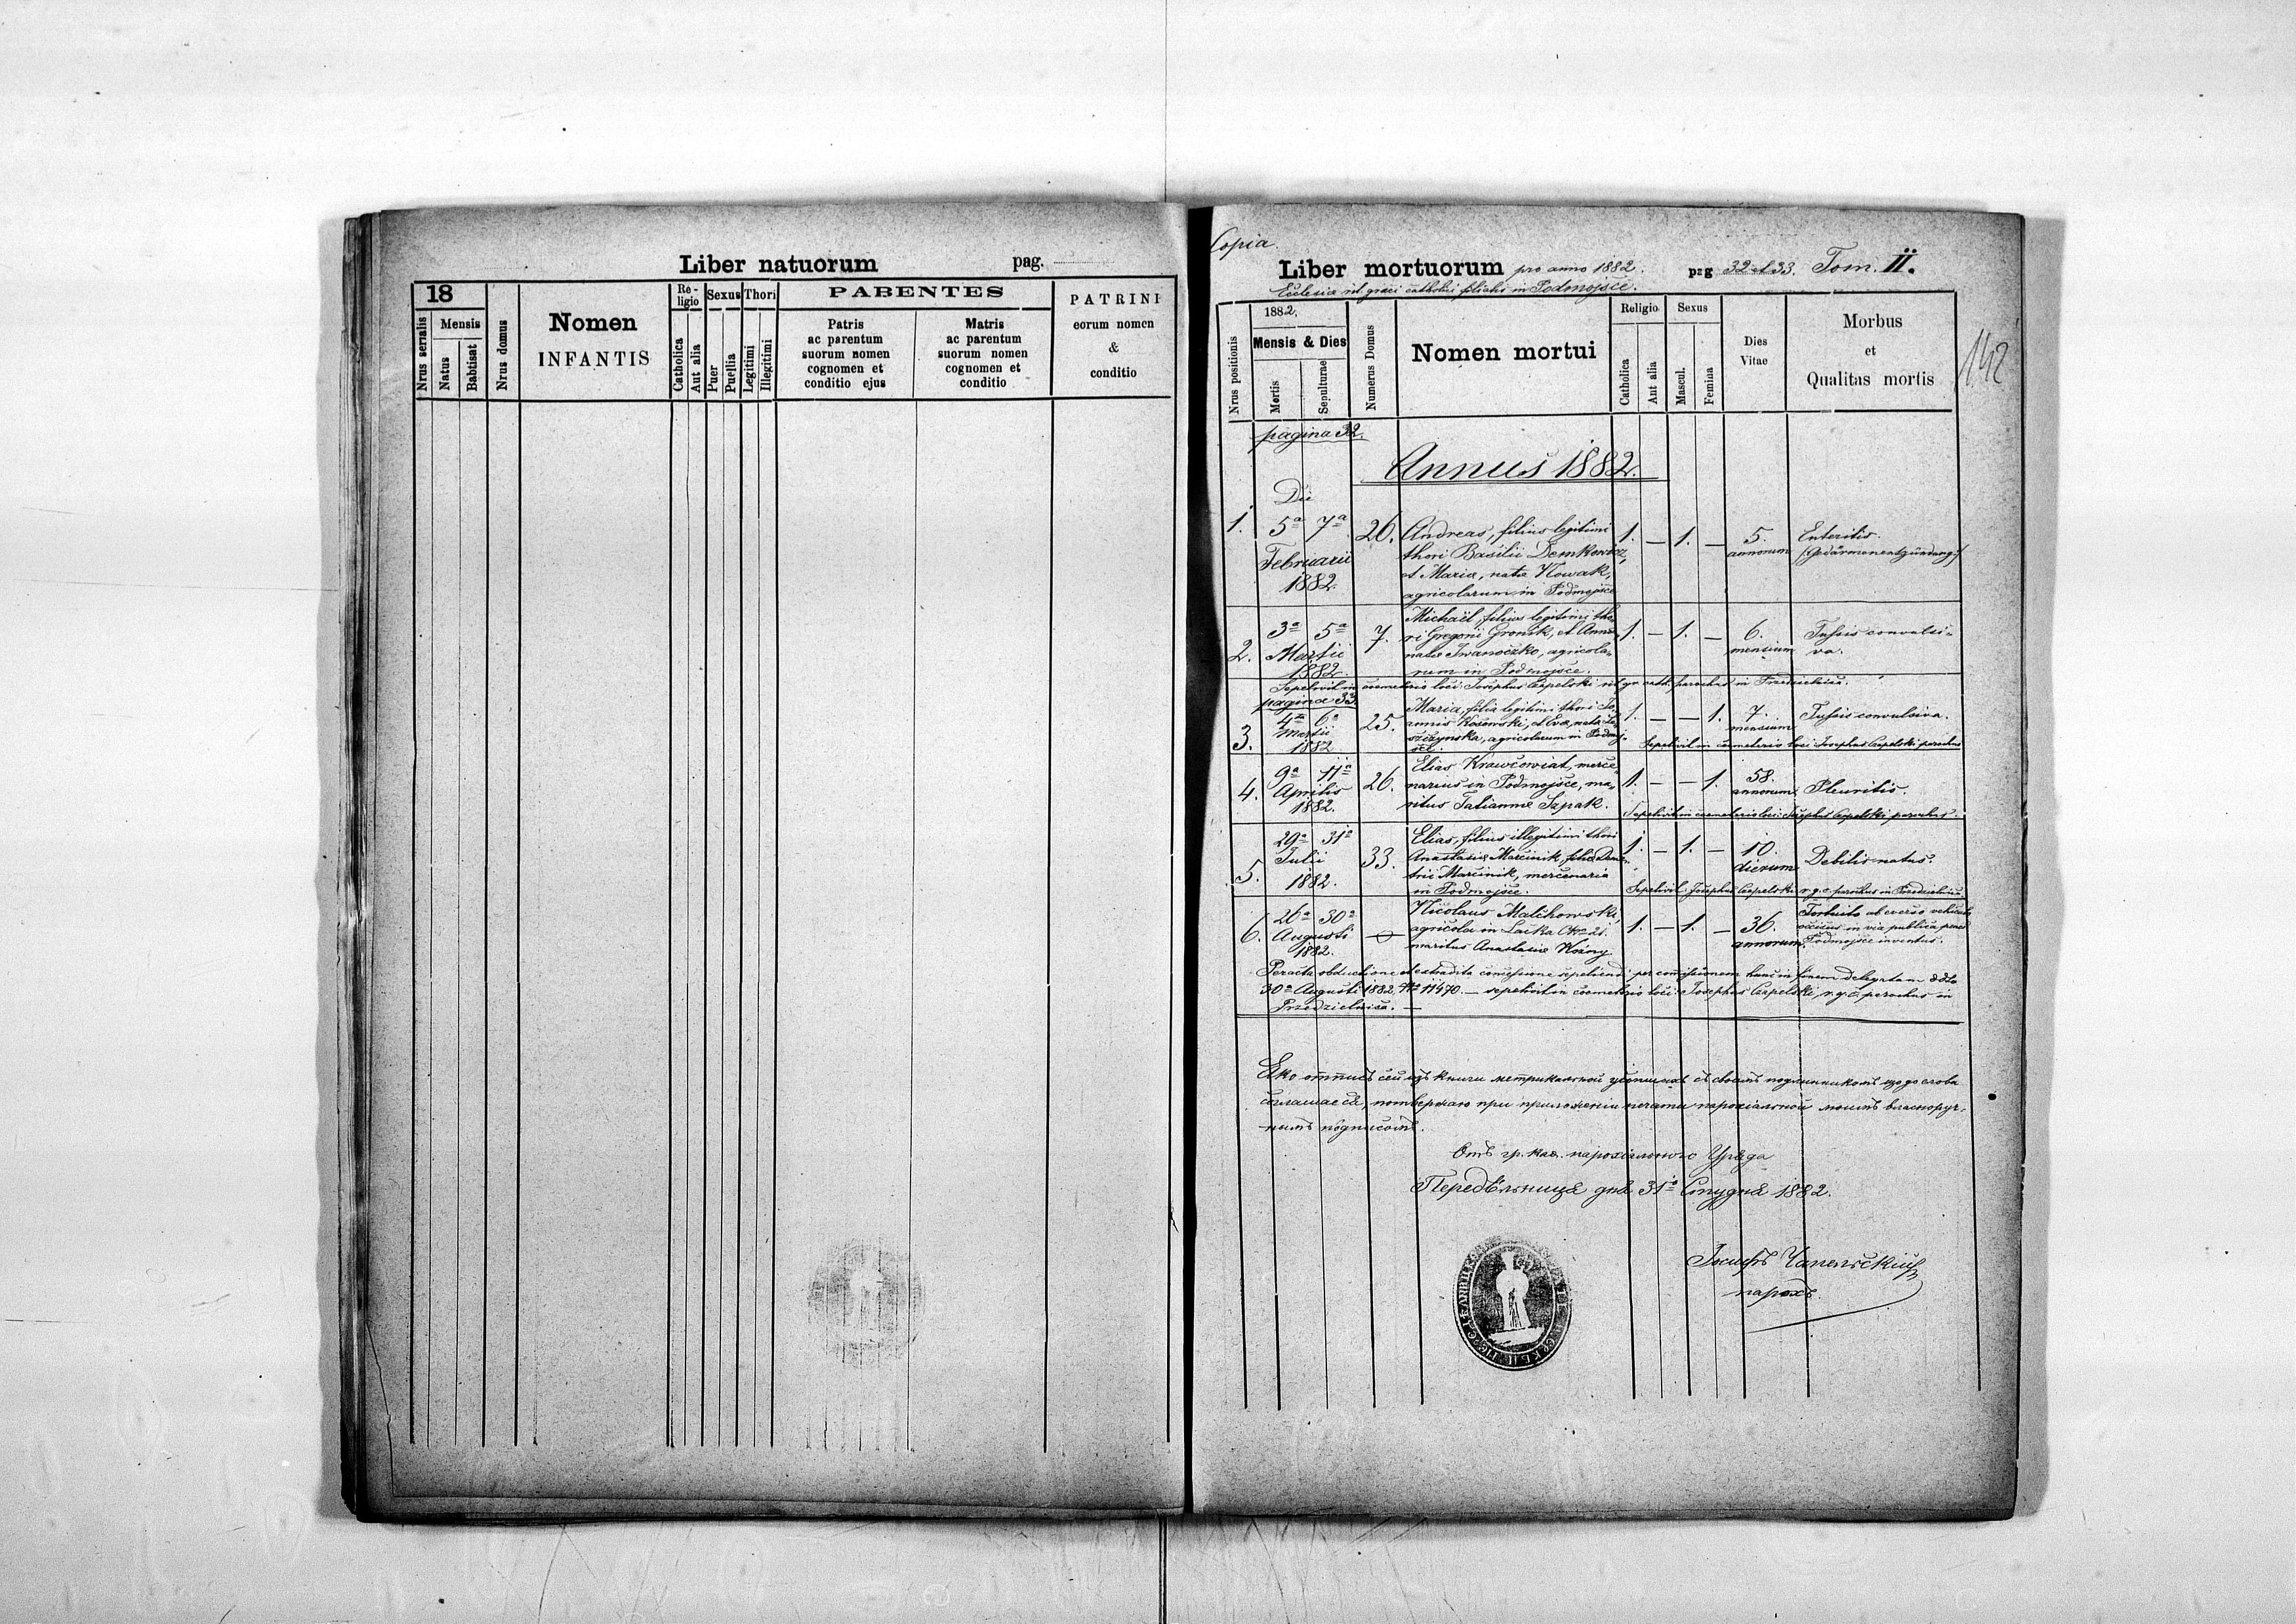 Liber natuorum pag.
18
Nrus serialis
Mensis
Natus
Babtisat
Nrus domus
Nomen
INFANTIS
Re-
ligio
Catholica
Aut alia
Sexus
Puer
Puella
Thori
Legitimi
Illegitimi
PARENTES
Patris
ac parentum
suorum nomen
cognomen et
conditio ejus
Matris
ac parentum
suorum nomen
cognomen et
conditio
PATRINI
eorum nomen
&
conditio
Copia.
Liber mortuorum pro anno 1882. pag 32 et 33. Tom. II.
Ecclesiae rit. graeci catholici filialis in Podmojsce.
Nrus positionis
1882.
Mensis & Dies
Mortis
Sepulturae
Numerus Domus
Nomen mortui
Religio
Catholica
Aut alia
Sexus
Mascul.
Femina
Dies
Vitae
Morbus
et
Qualitas mortis
142
pagina 32.
Annus 1882.
Die
1. 5a 7a
Februarii
1882.
26.
Andreas, filius legitimi
thori Basilii Demkowicz,
et Mariae, natae Nowak,
agricolarum in Podmojsce
1. — 1. —
5.
annorum
Enteritis.
(Gedärmenentzündung)
2. 3a 5a
Martii
1882.
7.
Michaël, filius legitimi tho-
ri Gregorii Gronik, et Annae
natae Iwanoczko, agricola-
rum in Podmojsce.
1. — 1. —
6.
mensium
Tussis convulsi-
va.
Sepelivit in coemeterio loci: Josephus Czapelski rit. gr. cath. parochus in Przedzielnica.
pagina 33.
3. 4a 6a
Martii
1882
25.
Maria, filia legitimi thori Jo-
annis Kosonski, et Evae, nata
agricolarum in Podmoj-
sce.
1. — — 1.
7.
mensium
Tussis convulsiva.
Sepelivit in coemeterio loci Josephus Czapelski parochus
4. 9a 11a
Aprilis
1882.
26.
Elias Krawcowiat, merce-
narius in Podmojsce, ma-
ritus Tatiannae Szpak.
1. — — 1.
58.
annorum
Pleuritis.
Sepelivit in coemeterio loci: Josephus Czapelski parochus.
5. 29a 31a
Julii
1882.
33.
Elias, filius illegitimi thori
Anastasiae Marcinik, filiae Deme-
trii Marcinik, mercenaria
in Podmojsce.
1. — 1. —
10.
dierum
Debilis natus.
Sepelivit: Josephus Czapelski r. g. c. parochus in Przedzielnica
6. 26a 30a
Augusti
1882.
Nicolaus Malchowski,
agricola in Lacka Nro 21.
maritus Anastasiae
1. — 1. —
36.
annorum.
Fortuito ab everso vehiculo
occisus in via publica prope
Podmojsce inventus.
Peracta obductione et extradita concessione sepeliendi per comissionem hunc in finem delegatam ddto
30a Augusti 1882 Nro 11470. — sepelivit in coemeterio loci: Josephus Czapelski, r. g. c. parochus in
Przedzielnica. —
Яко отписъ сей изъ книги метрикальной усопшихъ съ своимъ подлинникомъ що до слова
соглашаеся, потверждаю при приложенію печати парохіальной моимъ власноруч-
нымъ подписомъ.
Отъ гр. каѳ. парохіяльного Уряда
Передѣльниця дня 31го Студня 1882.
Іосифъ Чапельскій
парохъ.